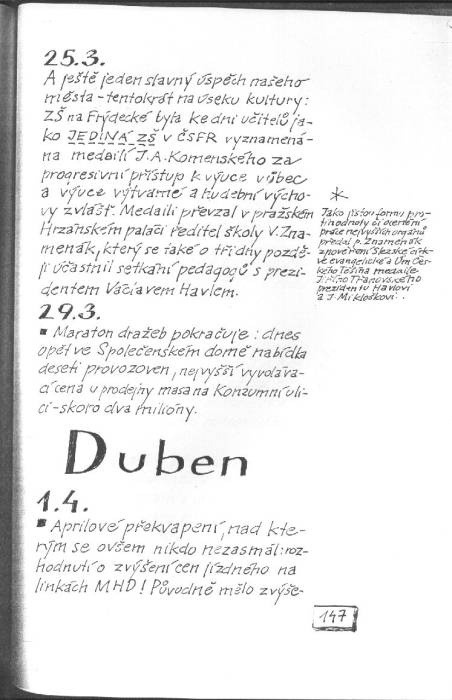 25.3.
A ještě jeden slavný úspěch našeho
města - tentokrát na úseku kultury:
ZŠ na Frýdecké byla ke dni učitelů ja-
ko JEDINÁ ZŠ v ČSFR vyznamená-
na medailí J. A. Komenského za
progresivní přístup k výuce vůbec
a výuce výtvarné a hudební výcho-
vy zvlášť. Medaili převzal v pražském
Hrzánském paláci ředitel školy V. Zna-
menák, který se také o tři dny pozdě-
ji účastnil setkání pedagogů s prezi-
dentem Václavem Havlem.
*
Jako jistou formu pro-
tihodnoty či ocenění
práce nejvyšších orgánů
předal p. Znamenák
z pověření Slezské círk-
ve evangelické a Úm Čes-
kého Těšína medaile
Jiřího Třanovského
prezidentu Havlovi
a J. Mikloškovi.
29.3.
▪ Maraton dražeb pokračuje: dnes
opět ve Společenském domě nabídka
deseti provozoven, nejvyšší vyvoláva-
cí cena u prodejny masa na Konzumní uli-
ci - skoro dva milióny.
Duben
1.4.
▪ Aprílové překvapení, nad kte-
rým se ovšem nikdo nezasmál: roz-
hodnutí o zvýšení cen jízdného na
linkách MHD! Původně mělo zvýše-
147